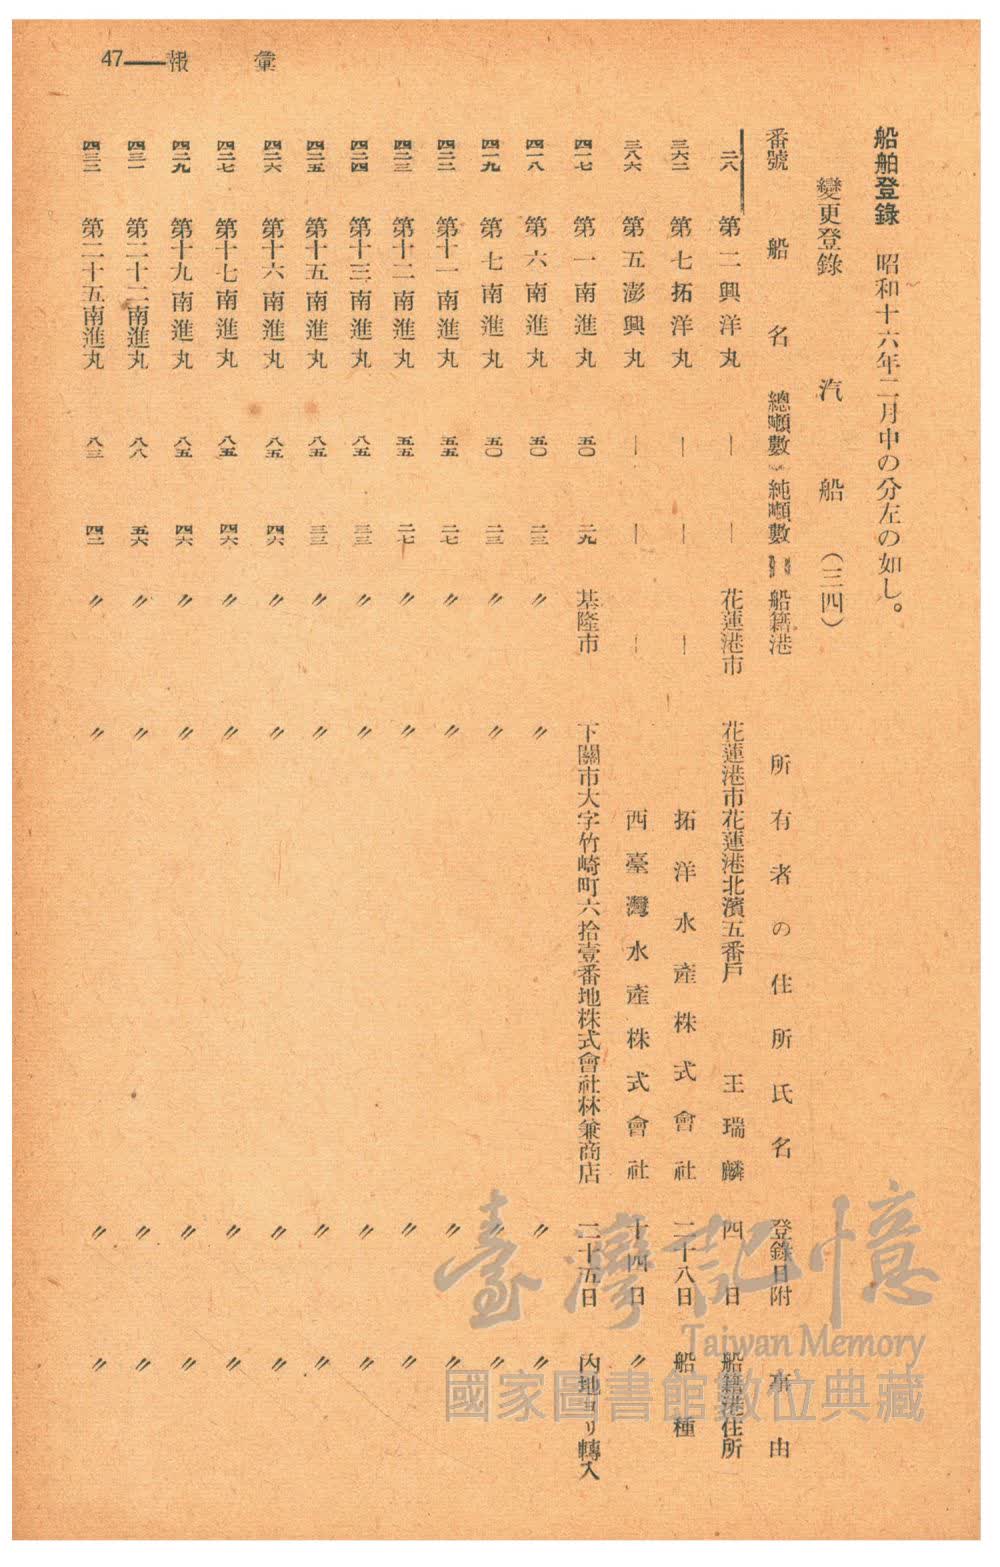 彙報——47
船舶登錄 昭和十六年二月中の分左の如し。
變更登錄 汽船 (三四)
番號 船名 總噸數 純噸數 船籍港 所有者の住所氏名 登錄日附 事由
二八 第二興洋丸 ｜ ｜ 花蓮港市 花蓮港市花蓮港北濱五番戶 王瑞麟 四日 船籍港住所
三六二 第七拓洋丸 ｜ ｜ ｜ 拓洋水產株式會社 二十八日 船種
三八六 第五澎興丸 ｜ ｜ ｜ 西臺灣水產株式會社 十四日 〃
四一七 第一南進丸 五〇 二九 基隆市 下關市大字竹崎町六拾壹番地株式會社林兼商店 二十五日 內地ヨリ轉入
四一八 第六南進丸 五〇 二三 〃 〃 〃 〃
四一九 第七南進丸 五〇 二三 〃 〃 〃 〃
四二二 第十一南進丸 五五 二七 〃 〃 〃 〃
四二三 第十二南進丸 五五 二七 〃 〃 〃 〃
四二四 第十三南進丸 八五 三三 〃 〃 〃 〃
四二五 第十五南進丸 八五 三三 〃 〃 〃 〃
四二六 第十六南進丸 八五 四六 〃 〃 〃 〃
四二七 第十七南進丸 八五 四六 〃 〃 〃 〃
四二九 第十九南進丸 八五 四六 〃 〃 〃 〃
四三一 第二十二南進丸 八八 五六 〃 〃 〃 〃
四三二 第二十五南進丸 八三 四二 〃 〃 〃 〃
臺灣記憶
Taiwan Memory
國家圖書館數位典藏